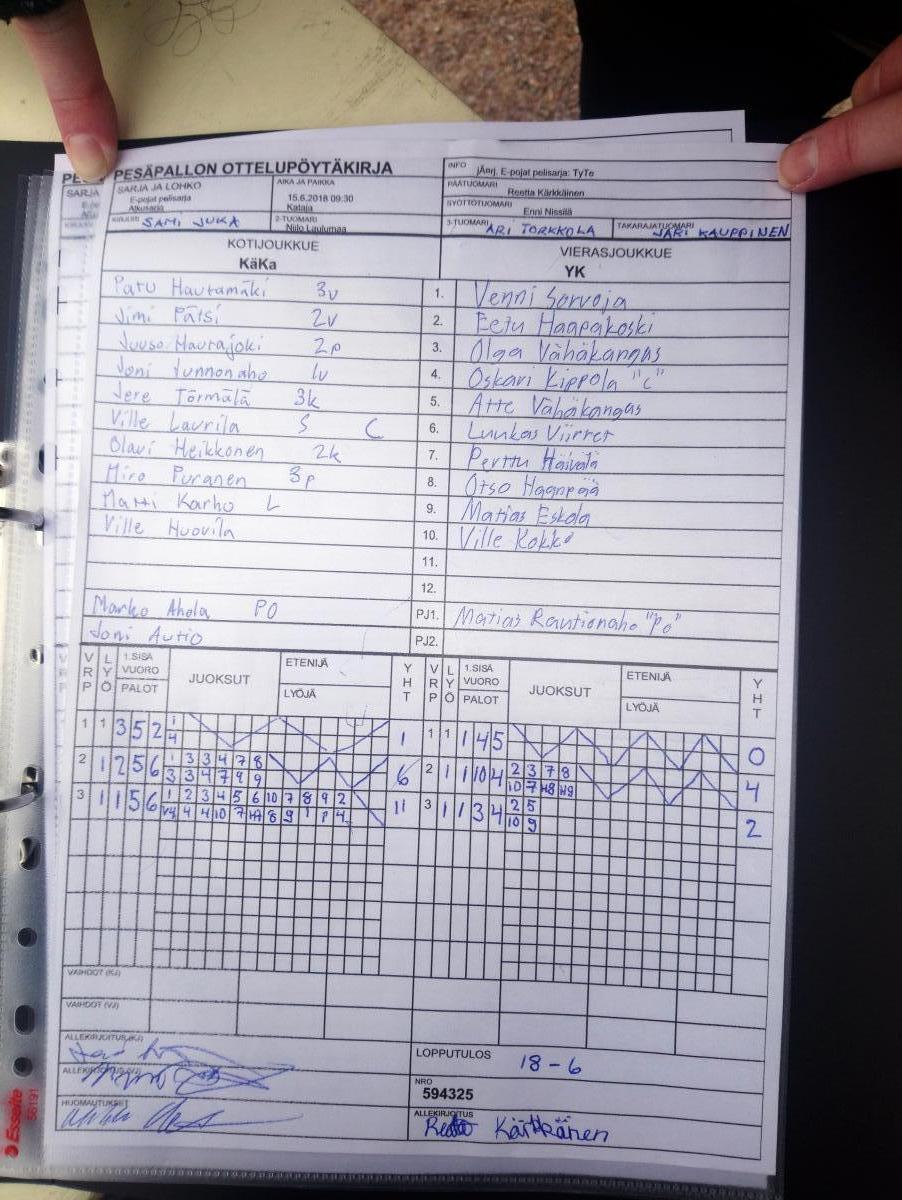 PESÄPALLON OTTELUPÖYTÄKIRJA
INFO
jÄnrj. E-pojat pelisarja: TyTe
SARJA JA LOHKO
E-pojat pelisarja
Alkusarja
AIKA JA PAIKKA
15.6.2018 09:30
Kataja
PÄÄTUOMARI
Reetta Kärkkäinen
SYÖTTÖTUOMARI
Enni Nissilä
KIRJURI SAMI JUKA
2-TUOMARI
Niilo Luulumaa
3-TUOMARI ARI TORKKOLA
TAKARAJATUOMARI JARI KAUPPINEN
KOTIJOUKKUE
KäKa
VIERASJOUKKUE
YK
Patu Hautamäki 3v 1. Venni Sorvoja
Jimi Pätsi 2v 2. Eetu Haapakoski
Juuso Haurajoki 2p 3. Olga Vähäkangas
Joni Junnonaho 1v 4. Oskari Kippola "C"
Jere Törmälä 3k 5. Atte Vähäkangas
Ville Laurila S C 6. Luukas Viirret
Olavi Heikkonen 2k 7. Perttu Häivälä
Miro Puranen 3p 8. Otso Haanpää
Matti Karho L 9. Matias Eskola
Ville Huovila 10. Ville Kokko
11.
12.
Marko Ahola PO PJ1. Matias Rautionaho "Po"
Joni Autio PJ2.
VRP LYÖ 1.SISÄ VUORO PALOT JUOKSUT ETENIJÄ LYÖJÄ YHT VRP LYÖ 1.SISÄ VUORO PALOT JUOKSUT ETENIJÄ LYÖJÄ YHT
1 1 3 5 2 1 1 1 1 1 4 5 0
4
2 1 2 5 6 1 3 3 4 7 8 6 2 1 1 10 4 2 3 7 8 4
3 3 4 7 9 9 10 7 H8 H9
3 1 1 5 6 1 2 3 4 5 6 10 7 8 9 2 11 3 1 1 3 4 2 5 2
4 4 10 7 8 9 1 P 4 10 9
VAIHDOT (KJ)
VAIHDOT (VJ)
ALLEKIRJOITUS (KJ)
ALLEKIRJOITUS (VJ)
HUOMAUTUKSET
LOPPUTULOS 18-6
NRO
594325
ALLEKIRJOITUS
Reetta Kärkkäinen
Esselte
56191